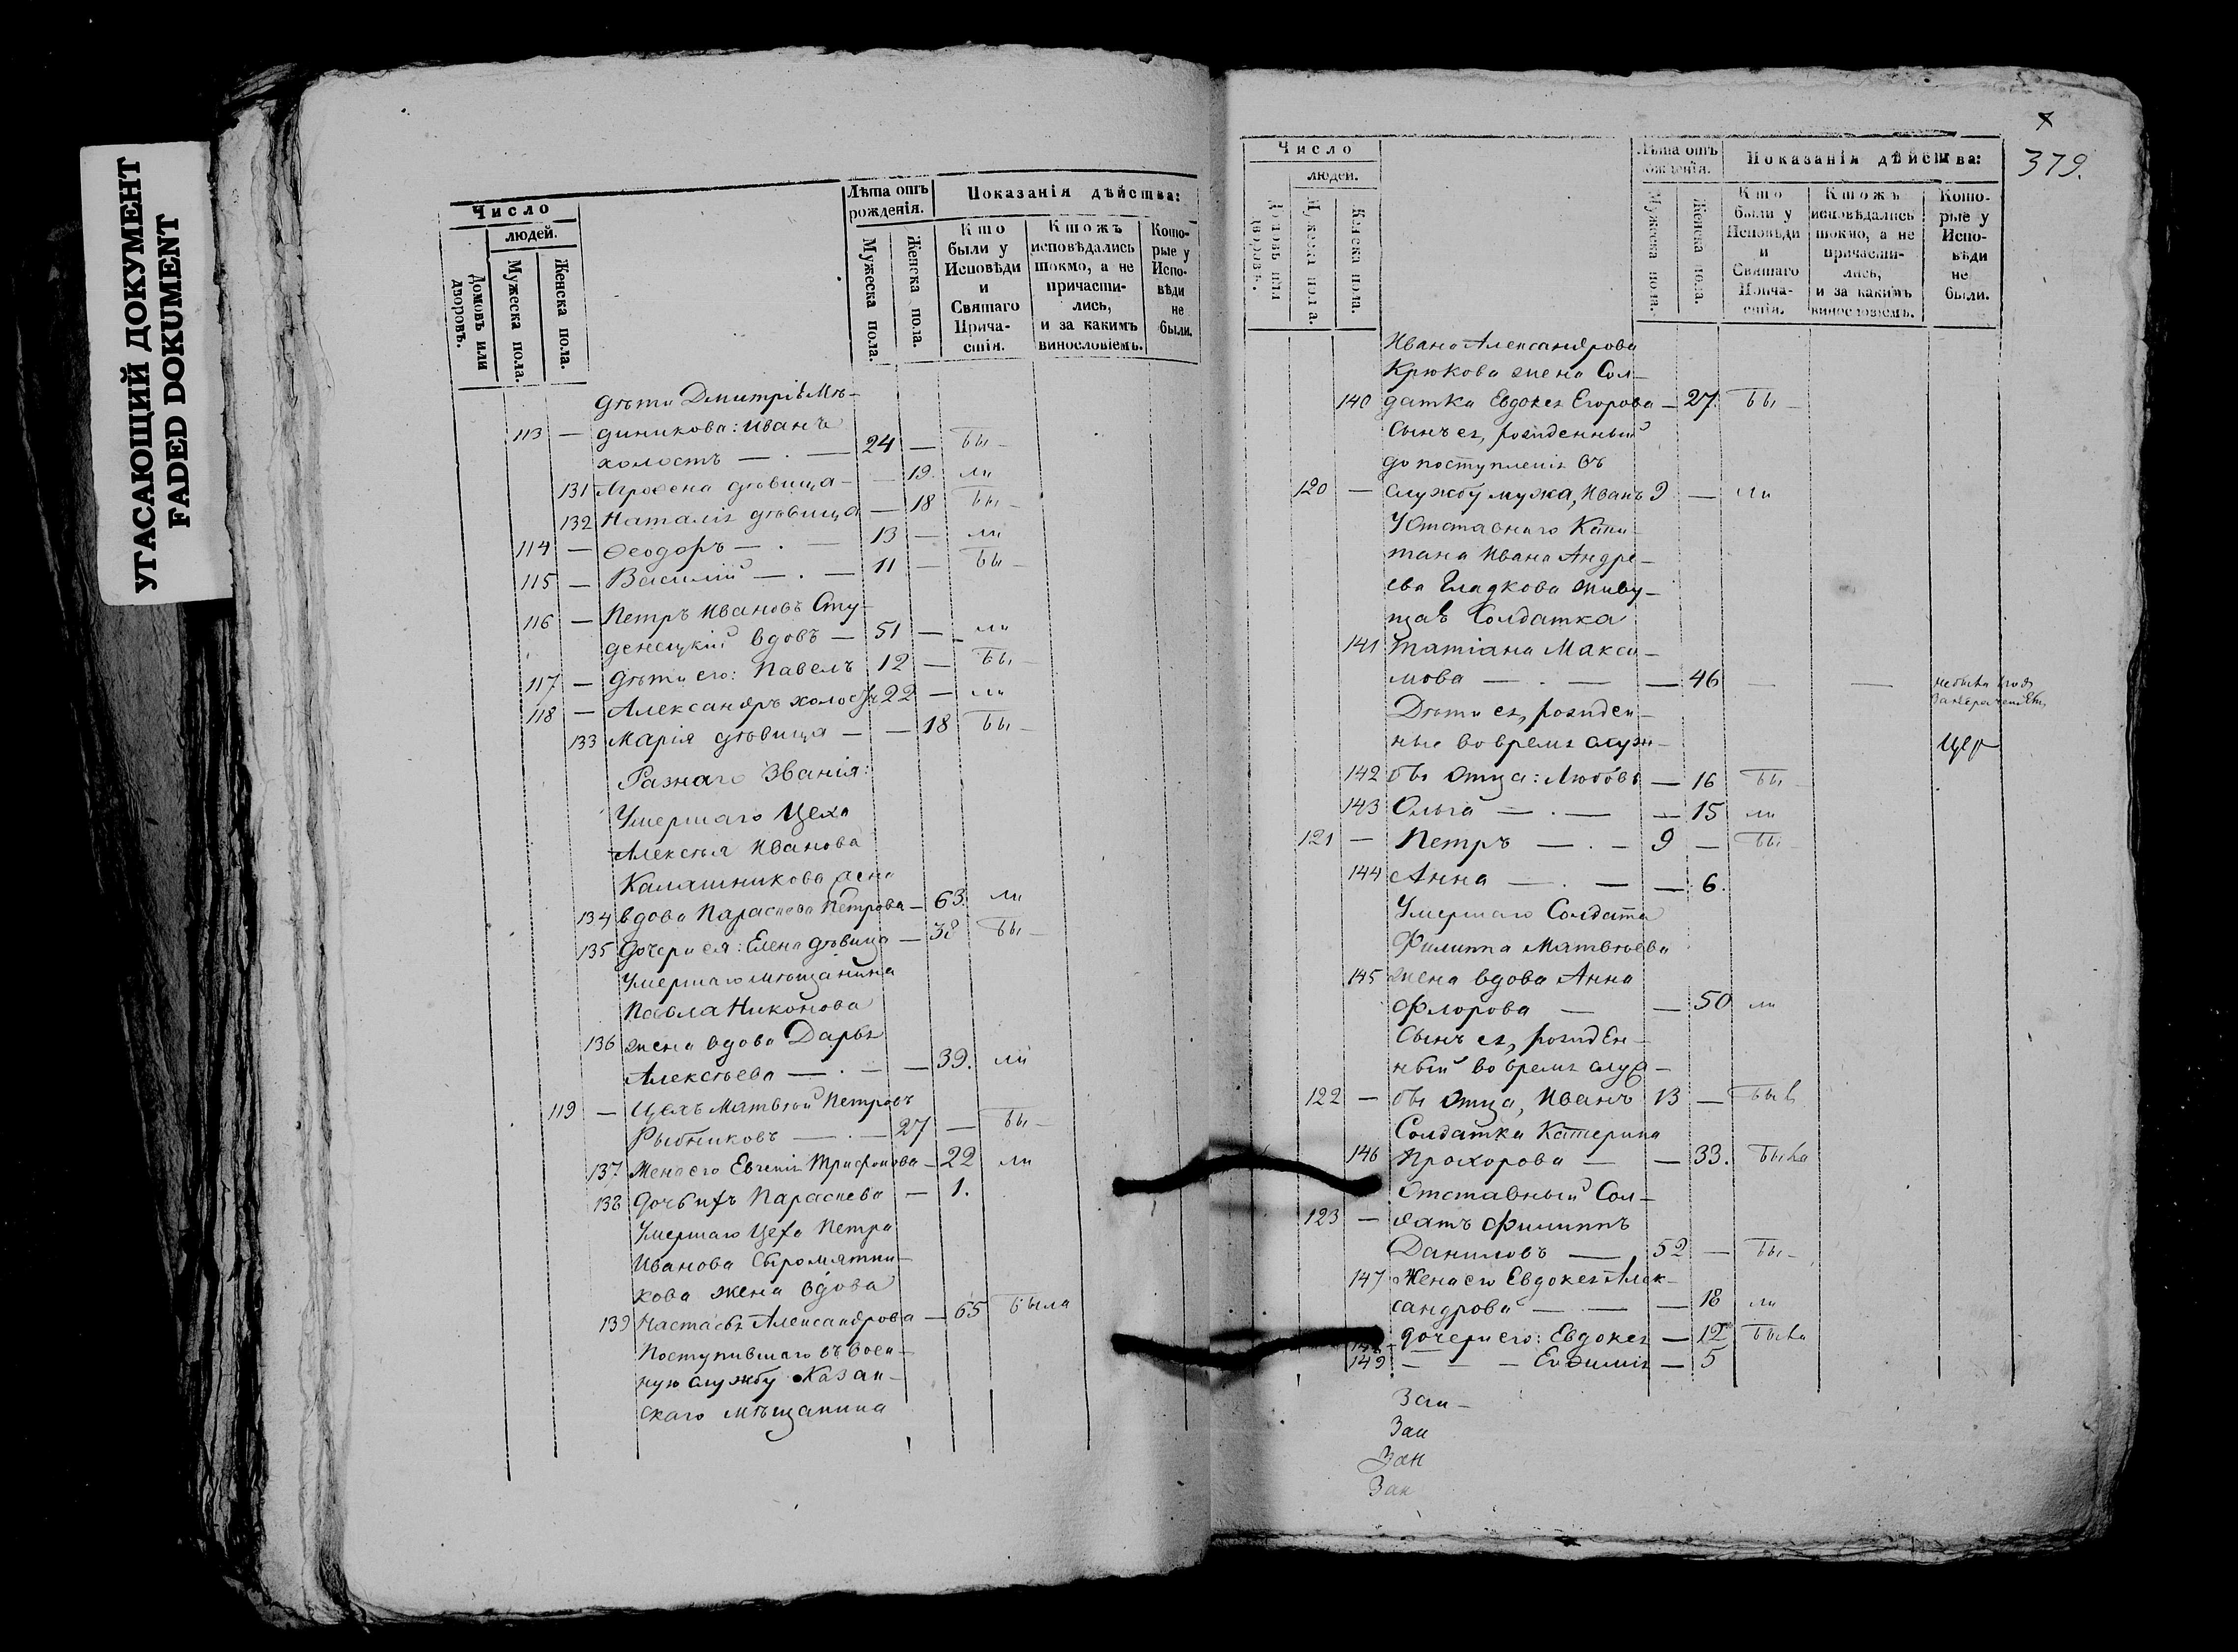 УГАСАЮЩИЙ ДОКУМЕНТ
FADED DOKUMENT
Число
людей.
Домовъ или дворовъ.
Мужеска пола.
Женска пола.
Лѣта отъ рожденія.
Мужеска пола.
Женска пола.
Показанія дѣйства:
Кто были у Исповѣди и Святаго Причастія.
Ктожъ исповѣдались токмо, а не причастились, и за какимъ винословіемъ.
Которые у Исповѣди не были.
дѣти Дмитрія Мѣ-
113 — диникова: Иванъ
холостъ — . — 24 — бы-
131 Агрофена дѣвица — — 19. ли
132 Наталія дѣвица — 18 бы-
114 — Ѳеодоръ — . — 13 — ли
115 — Василій — . — 11 — бы-
116 — Петръ Ивановъ Сту-
денецкій вдовъ — 51 — ли
117 — дѣти его: Павелъ 12 — бы-
118 — Александръ холостъ 22 — ли
133 Марія дѣвица — — 18 бы-
Разнаго Званія:
Умершаго Цеха
Алексѣя Иванова
Калашникова жена
134 вдова Параскева Петрова — 63. ли
135 дочери ея: Елена дѣвица — 38 бы-
Умершаго мѣщанина
Павла Никонова
136 жена вдова Дарья
Алексѣева — . — — 39. ли
119 — Цехъ Матвѣй Петровъ
Рыбниковъ — . — 27 — бы-
137 Жена его Евгенія Трифонова — 22 ли
138 дочь ихъ Параскева — 1.
Умершаго Цеха Петра
Иванова Сыромятни-
кова жена вдова
139 Настасья Александрова — 65 была
Поступившаго въ воен-
ную службу Казан-
скаго мѣщанина
379.
Число
людей.
Домовъ или дворовъ.
Мужеска пола.
Женска пола.
Лѣта отъ рожденія.
Мужеска пола.
Женска пола.
Показанія дѣйства:
Кто были у Исповѣди и Святаго Причастія.
Ктожъ исповѣдались токмо, а не причастились, и за какимъ винословіемъ.
Которые у Исповѣди не были.
Ивана Александрова
Крюкова жена Сол-
140 датка Евдокея Егорова — 27. бы-
Сынъ ея, рожденный
до поступленія въ
120 — службу мужа, Иванъ 9 — ли
У Отставнаго Капи-
тана Ивана Андре-
ева Гладкова живу-
щая Солдатка
141 Татіана Макси-
мова — . — — 46 — —
Дѣти ея, рожден-
ные во время служ-
142 бы отца: Любовь — 16 бы-
143 Ольга — . — — 15 ли
121 — Петръ — . — 9 — бы-
144 Анна — . — — 6.
Умершаго Солдата
Филиппа Матвѣева
145 жена вдова Анна
Флорова — — 50 ли
Сынъ ея, рожден-
ный во время служ-
122 — бы отца, Иванъ 13 — былъ
Солдатка Катерина
146 Прохорова — — 33. была
Отставный Сол-
123 — датъ Филиппъ
Даниловъ — 52 — бы-
147 Жена его Евдокея Алек-
сандрова — — — 18 ли
148 дочери его: Евдокея — 12 была
149 — — — Евфимія — 5